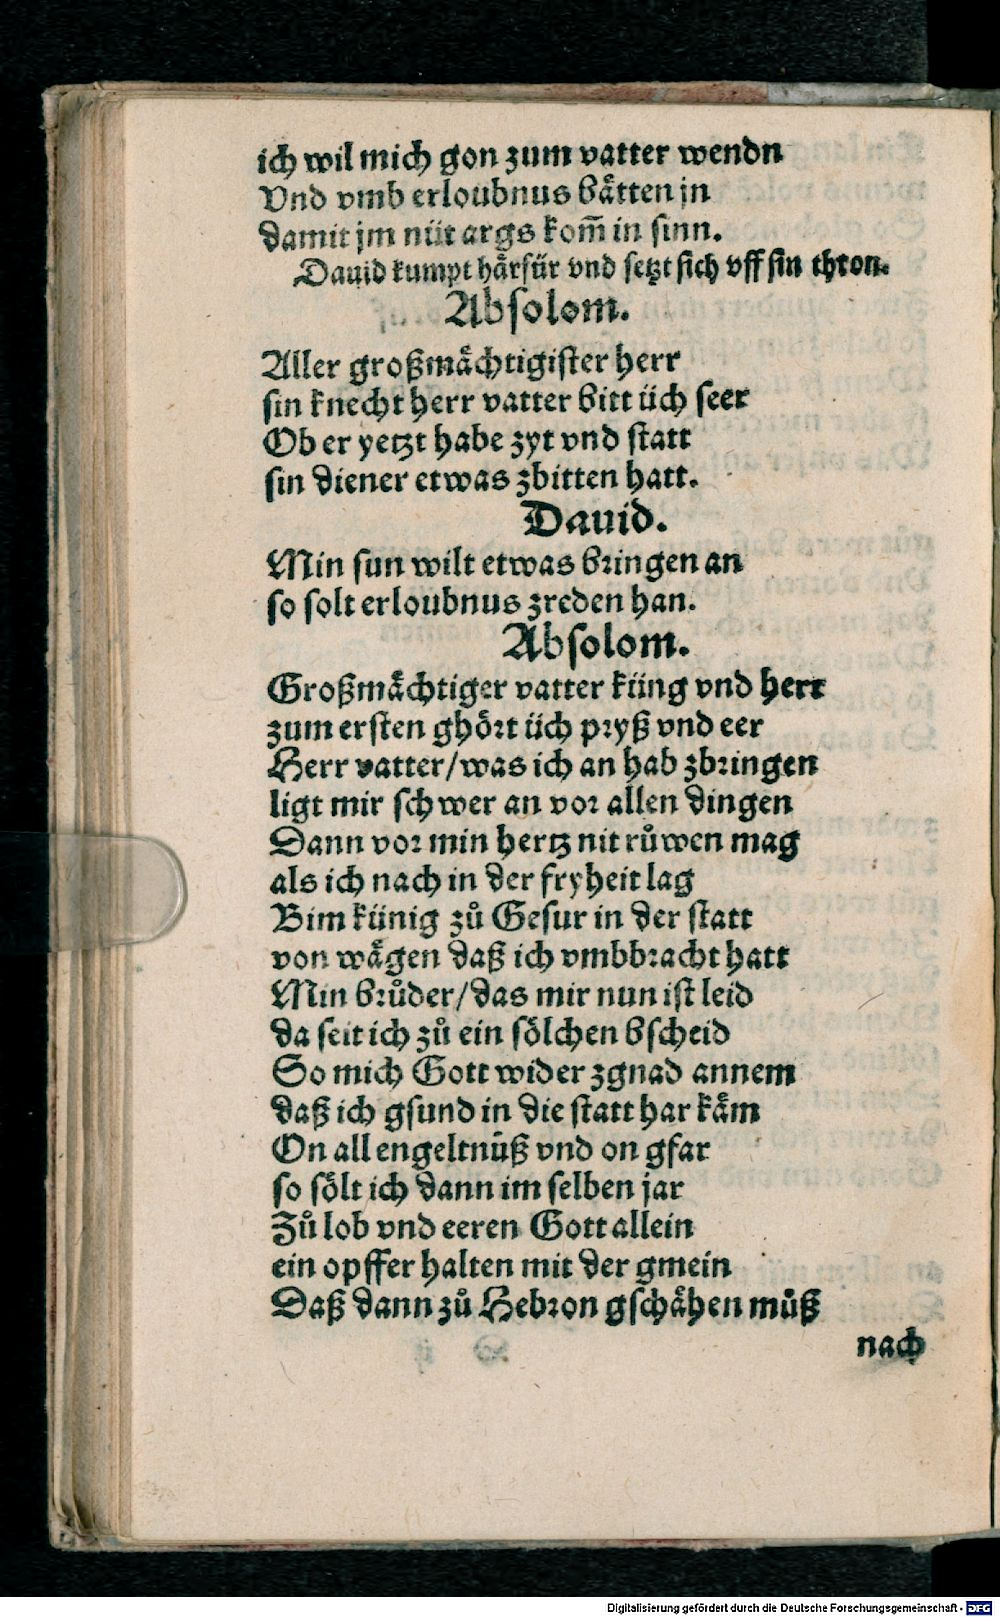 ich wil mich gon zum vatter wendn
Vnd vmb erloubnus bätten jn
damit jm nüt args kom̃ in sinn.
Dauid kumpt härfür vnd setzt sich vff sin thron.
Absolom.
Aller großmächtigister herr
sin knecht herr vatter bitt üch seer
Ob er yetzt habe zyt vnd statt
sin diener etwas zbitten hatt.
Dauid.
Min sun wilt etwas bringen an
so solt erloubnus zreden han.
Absolom.
Großmächtiger vatter küng vnd herr
zum ersten ghört üch pryß vnd eer
Herr vatter/was ich an hab zbringen
ligt mir schwer an vor allen dingen
Dann vor min hertz nit růwen mag
als ich nach in der fryheit lag
Bim künig zů Gesur in der statt
von wägen daß ich vmbbracht hatt
Min brůder/das mir nun ist leid
da seit ich zů ein sölchen bscheid
So mich Gott wider zgnad annem
daß ich gsund in die statt har käm
On all engeltnüß vnd on gfar
so sölt ich dann im selben jar
Zů lob vnd eeren Gott allein
ein opffer halten mit der gmein
Daß dann zů Hebron gschähen můß
nach
Digitalisierung gefördert durch die Deutsche Forschungsgemeinschaft - DFG